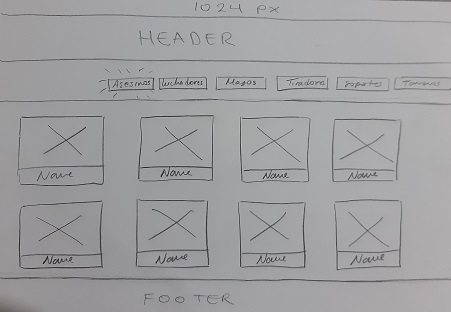 1024 PX
HEADER
Asesinos Luchadores Magos Tiradores Soportes Tanques
Name Name Name Name
Name Name Name Name
FOOTER